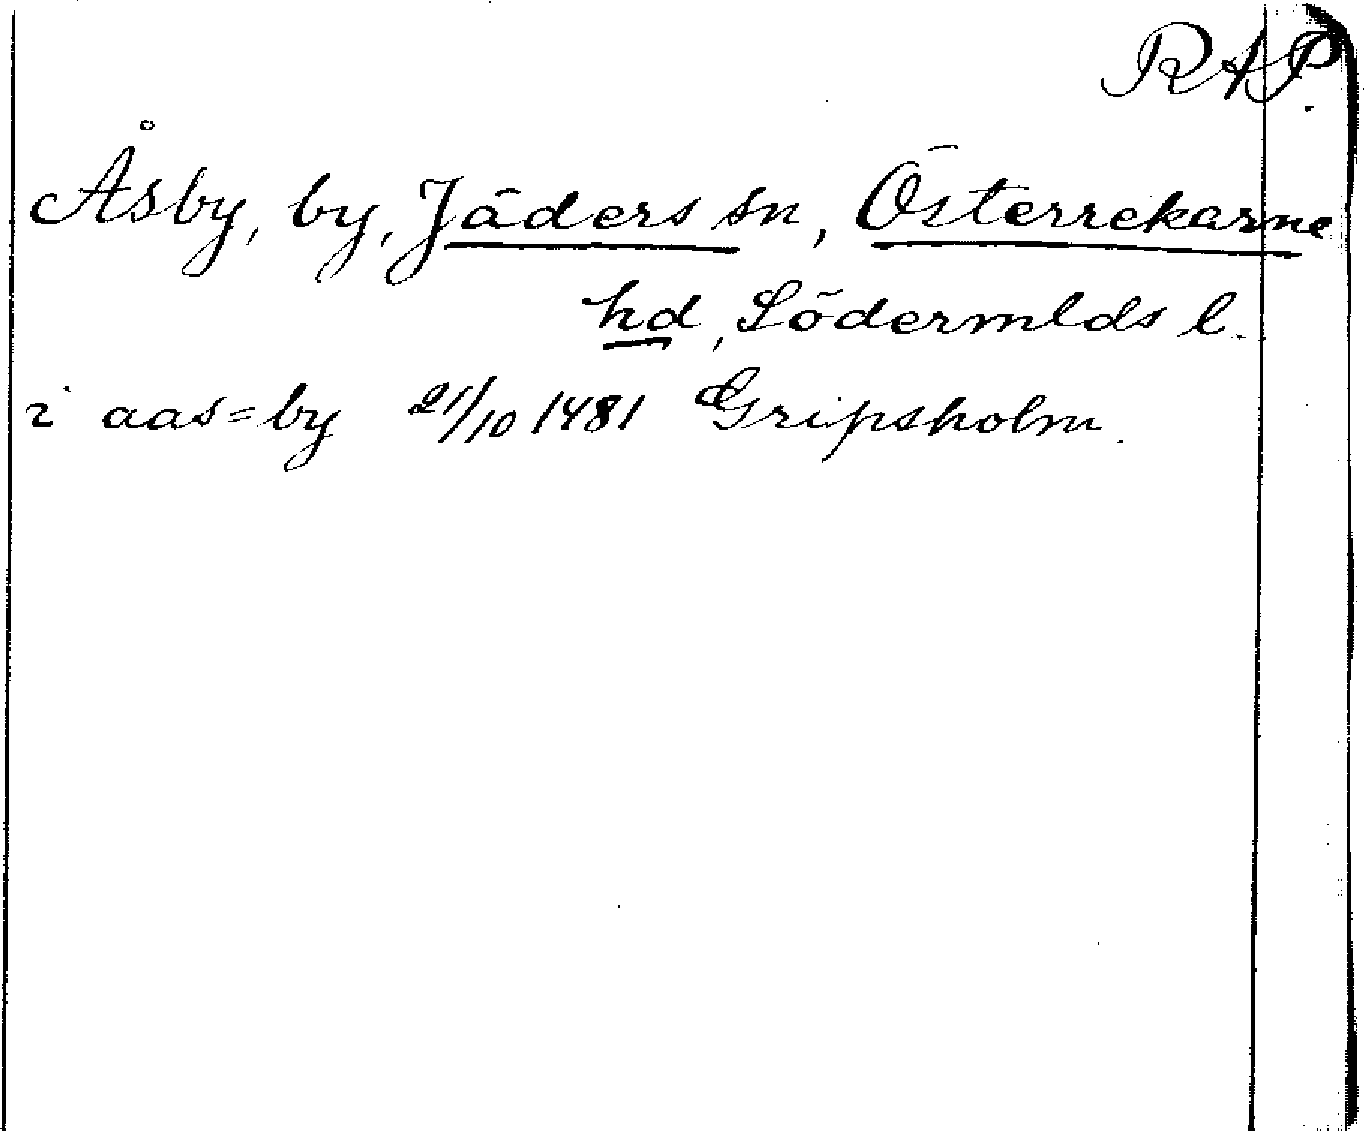 RAP.
Åsby, by, Jäders sn, Österrekarne
hd, Södermlds l.
i aas=by 21/10 1481 Gripsholm.